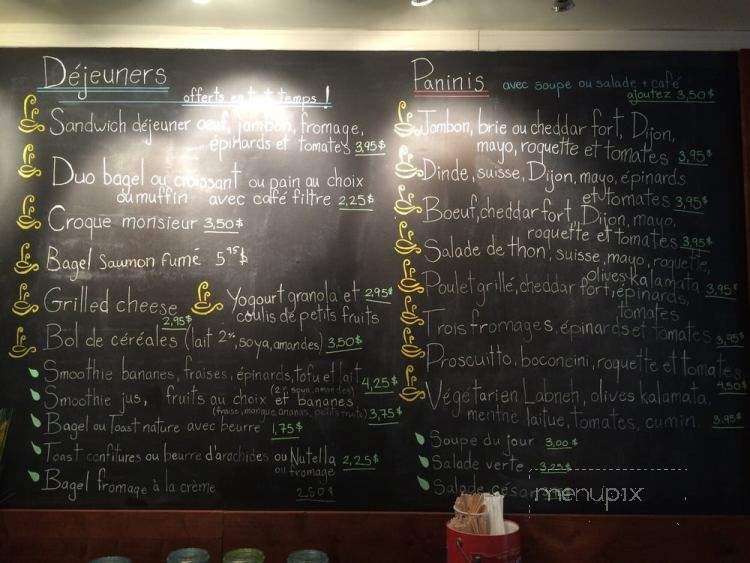 Déjeuners
offerts en tout temps !
Sandwich déjeuner oeuf, jambon, fromage,
épinards et tomates 3,95$
Duo bagel ou croissant ou pain au choix
ou muffin avec café filtre 2,25$
Croque monsieur 3,50$
Bagel Saumon fumé 5 95$
Grilled cheese
2,95$
Yogourt granola et 2,95$
coulis de petits fruits
Bol de céréales (lait 2%, soya, amandes) 3,50$
Smoothie bananes, fraises, épinards, tofu et lait 4,25$
(2%, soya, amandes)
Smoothie jus, fruits au choix et bananes
(fraise, mangue, ananas, petits fruits) 3,75$
Bagel ou Toast nature avec beurre 1,75$
Toast confitures ou beurre d'arachides ou Nutella 2,25$
ou fromage
Bagel fromage à la crème 2,50$
Paninis avec soupe ou salade + café
ajoutez 3,50$
Jambon, brie ou cheddar fort, Dijon,
mayo, roquette et tomates 3,95$
Dinde, suisse, Dijon, mayo, épinards
et tomates 3,95$
Boeuf, cheddar fort, Dijon, mayo,
roquette et tomates 3,95$
Salade de thon, suisse, mayo, roquette,
olives kalamata 3,95$
Poulet grillé, cheddar fort, épinards,
tomates
Trois fromages, épinards et tomates 3,95$
Proscuitto, boconcini, roquette et tomates
4,50$
Végétarien Labneh, olives kalamata,
menthe laitue, tomates, cumin 3,95$
Soupe du jour 3,00$
Salade verte 3,25$
Salade césar
menupix